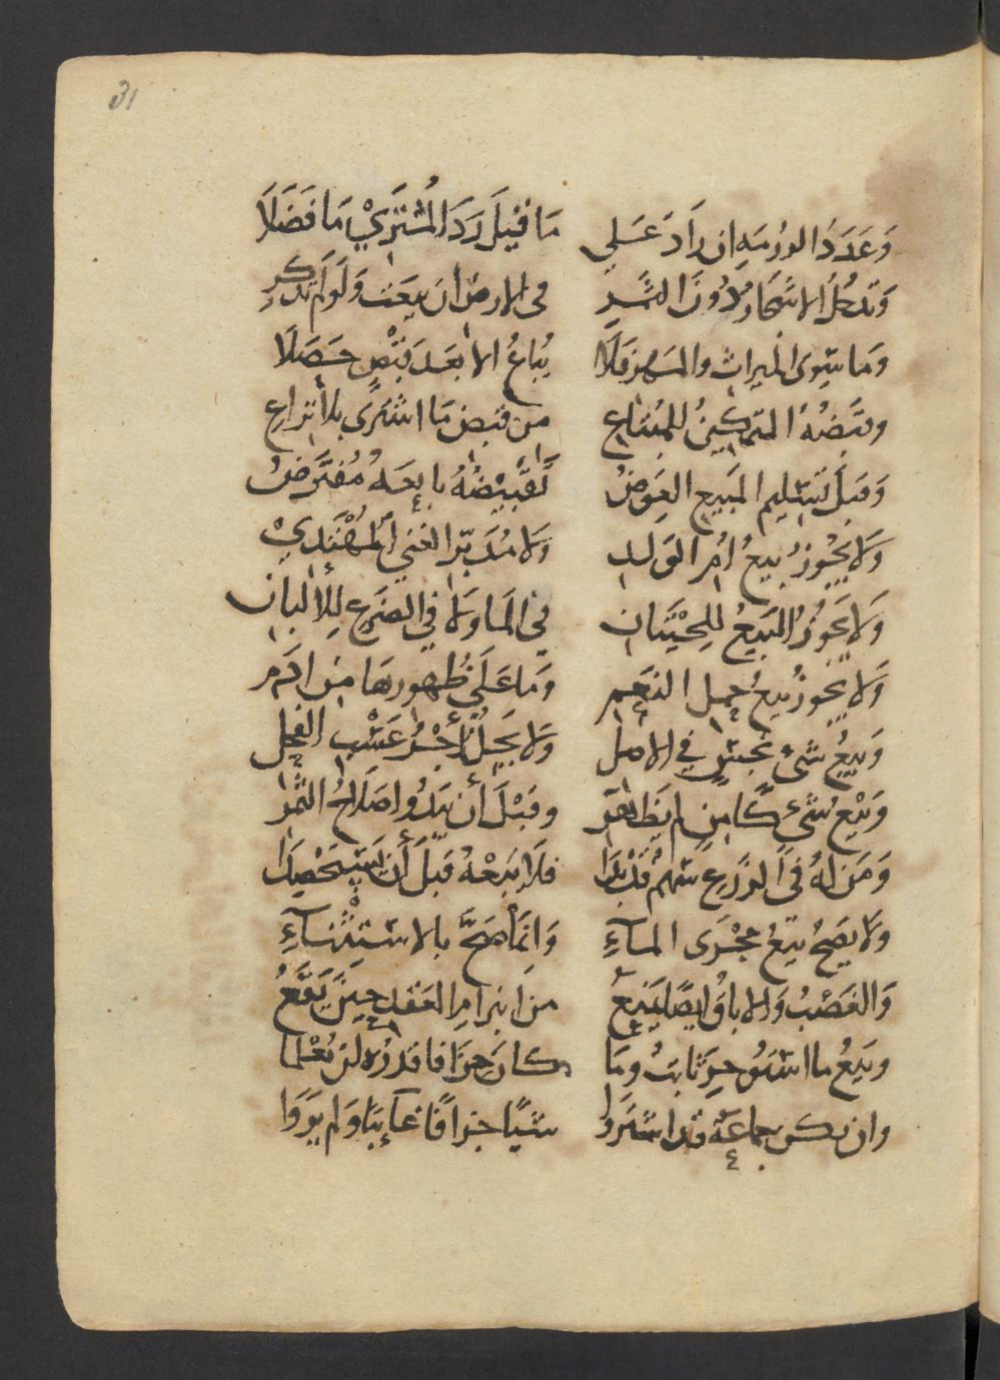 31
وَعَدَدُ المورُمَةِ ان زَادَ عَلَي مَا قِيْلَ رَدَّ المُشْتَرِيْ مَا فَضَلَا
وَتَدخُلُ الاشجَارُ دُونَ الثمَرِ في الارض ان بيعَت وَلَو لَم تذكرِ
وَمَا سِوى الميراث والمَهرِ فَلَا يُبَاعُ الا بَعدَ قَبْضٍ حَصَلَا
وقبضُهُ التمكينُ للمُبتاعِ من قبض مَا اشترى بلا نِزاعِ
وَقبلَ تَسليم المَبيع العِوَضُ تَقبِيْضُهُ بايعَهُ مُفتَرَضُ
وَلَا يَجُوزُ بيعُ اُمّ الوَلَدِ ولا مُدَبّر الغني المُهْتَدِيْ
وَلَا يَجُوزُ البَيعُ للحِيْتَانِ في المَا وَلا في الضرَعِ لِلألبانِ
وَلَا يجوزُ بيعُ حمل النعَمِ وَمَا عَلَي ظُهورِهَا مِن ادَمِ
وَبيعُ شيءٍ نجسٍ في الاصلِ ولا يَحِلُّ أَجْرُ عَسْبِ الفحلِ
وَبَيْعُ شيءٍ كَامِنٍ لم يَظهَرِ وقبْلَ أن يَبدُوا صَلَاحُ الثمَرِ
وَمَن لهُ في الزَرعِ سَهمٌ قَدْ بَدَا فلَا يَبِعْهُ قبلَ أن يَسْتحْصِدَا
ولا يصِحُّ بيعُ مَجْرَى المآءِ وَانمَا صَحَّ بالاستِثْنَآءِ
وَالغَصْبُ والاباقُ ايضًا يَمنَعُ من ابرَامِ العَقدِ حِيْنَ يَقَعُ
وبيعُ ما استَوُجِرَ ثابتٌ ومَا كانَ جزَافا قدرُهُ لن يُعْلمَا
وان يكن جماعَةٌ قد اشترَوا شيًا جزافًا غآئبًا وَلم يَرَوَا